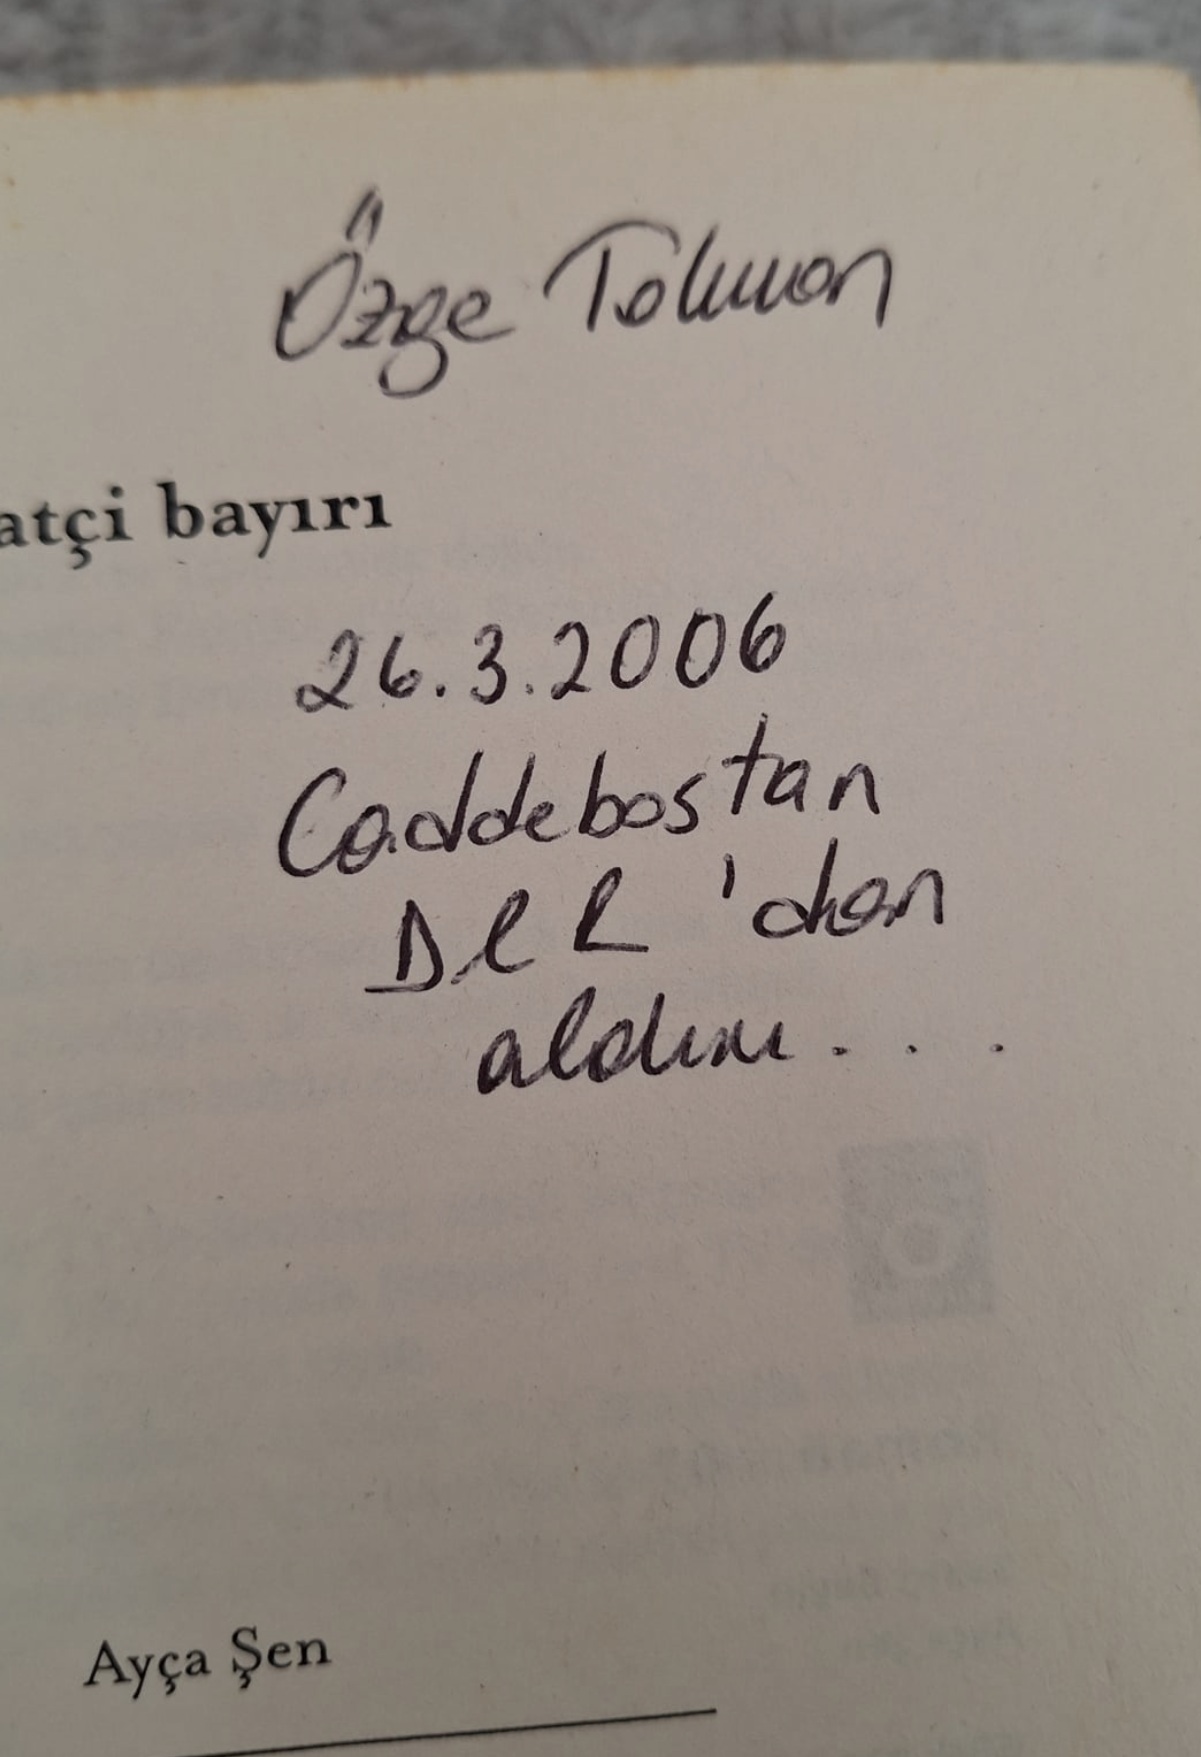 Özge Tolunon
atçi bayırı
26.3.2006
Caddebostan
D&R 'dan
aldım...
Ayça Şen